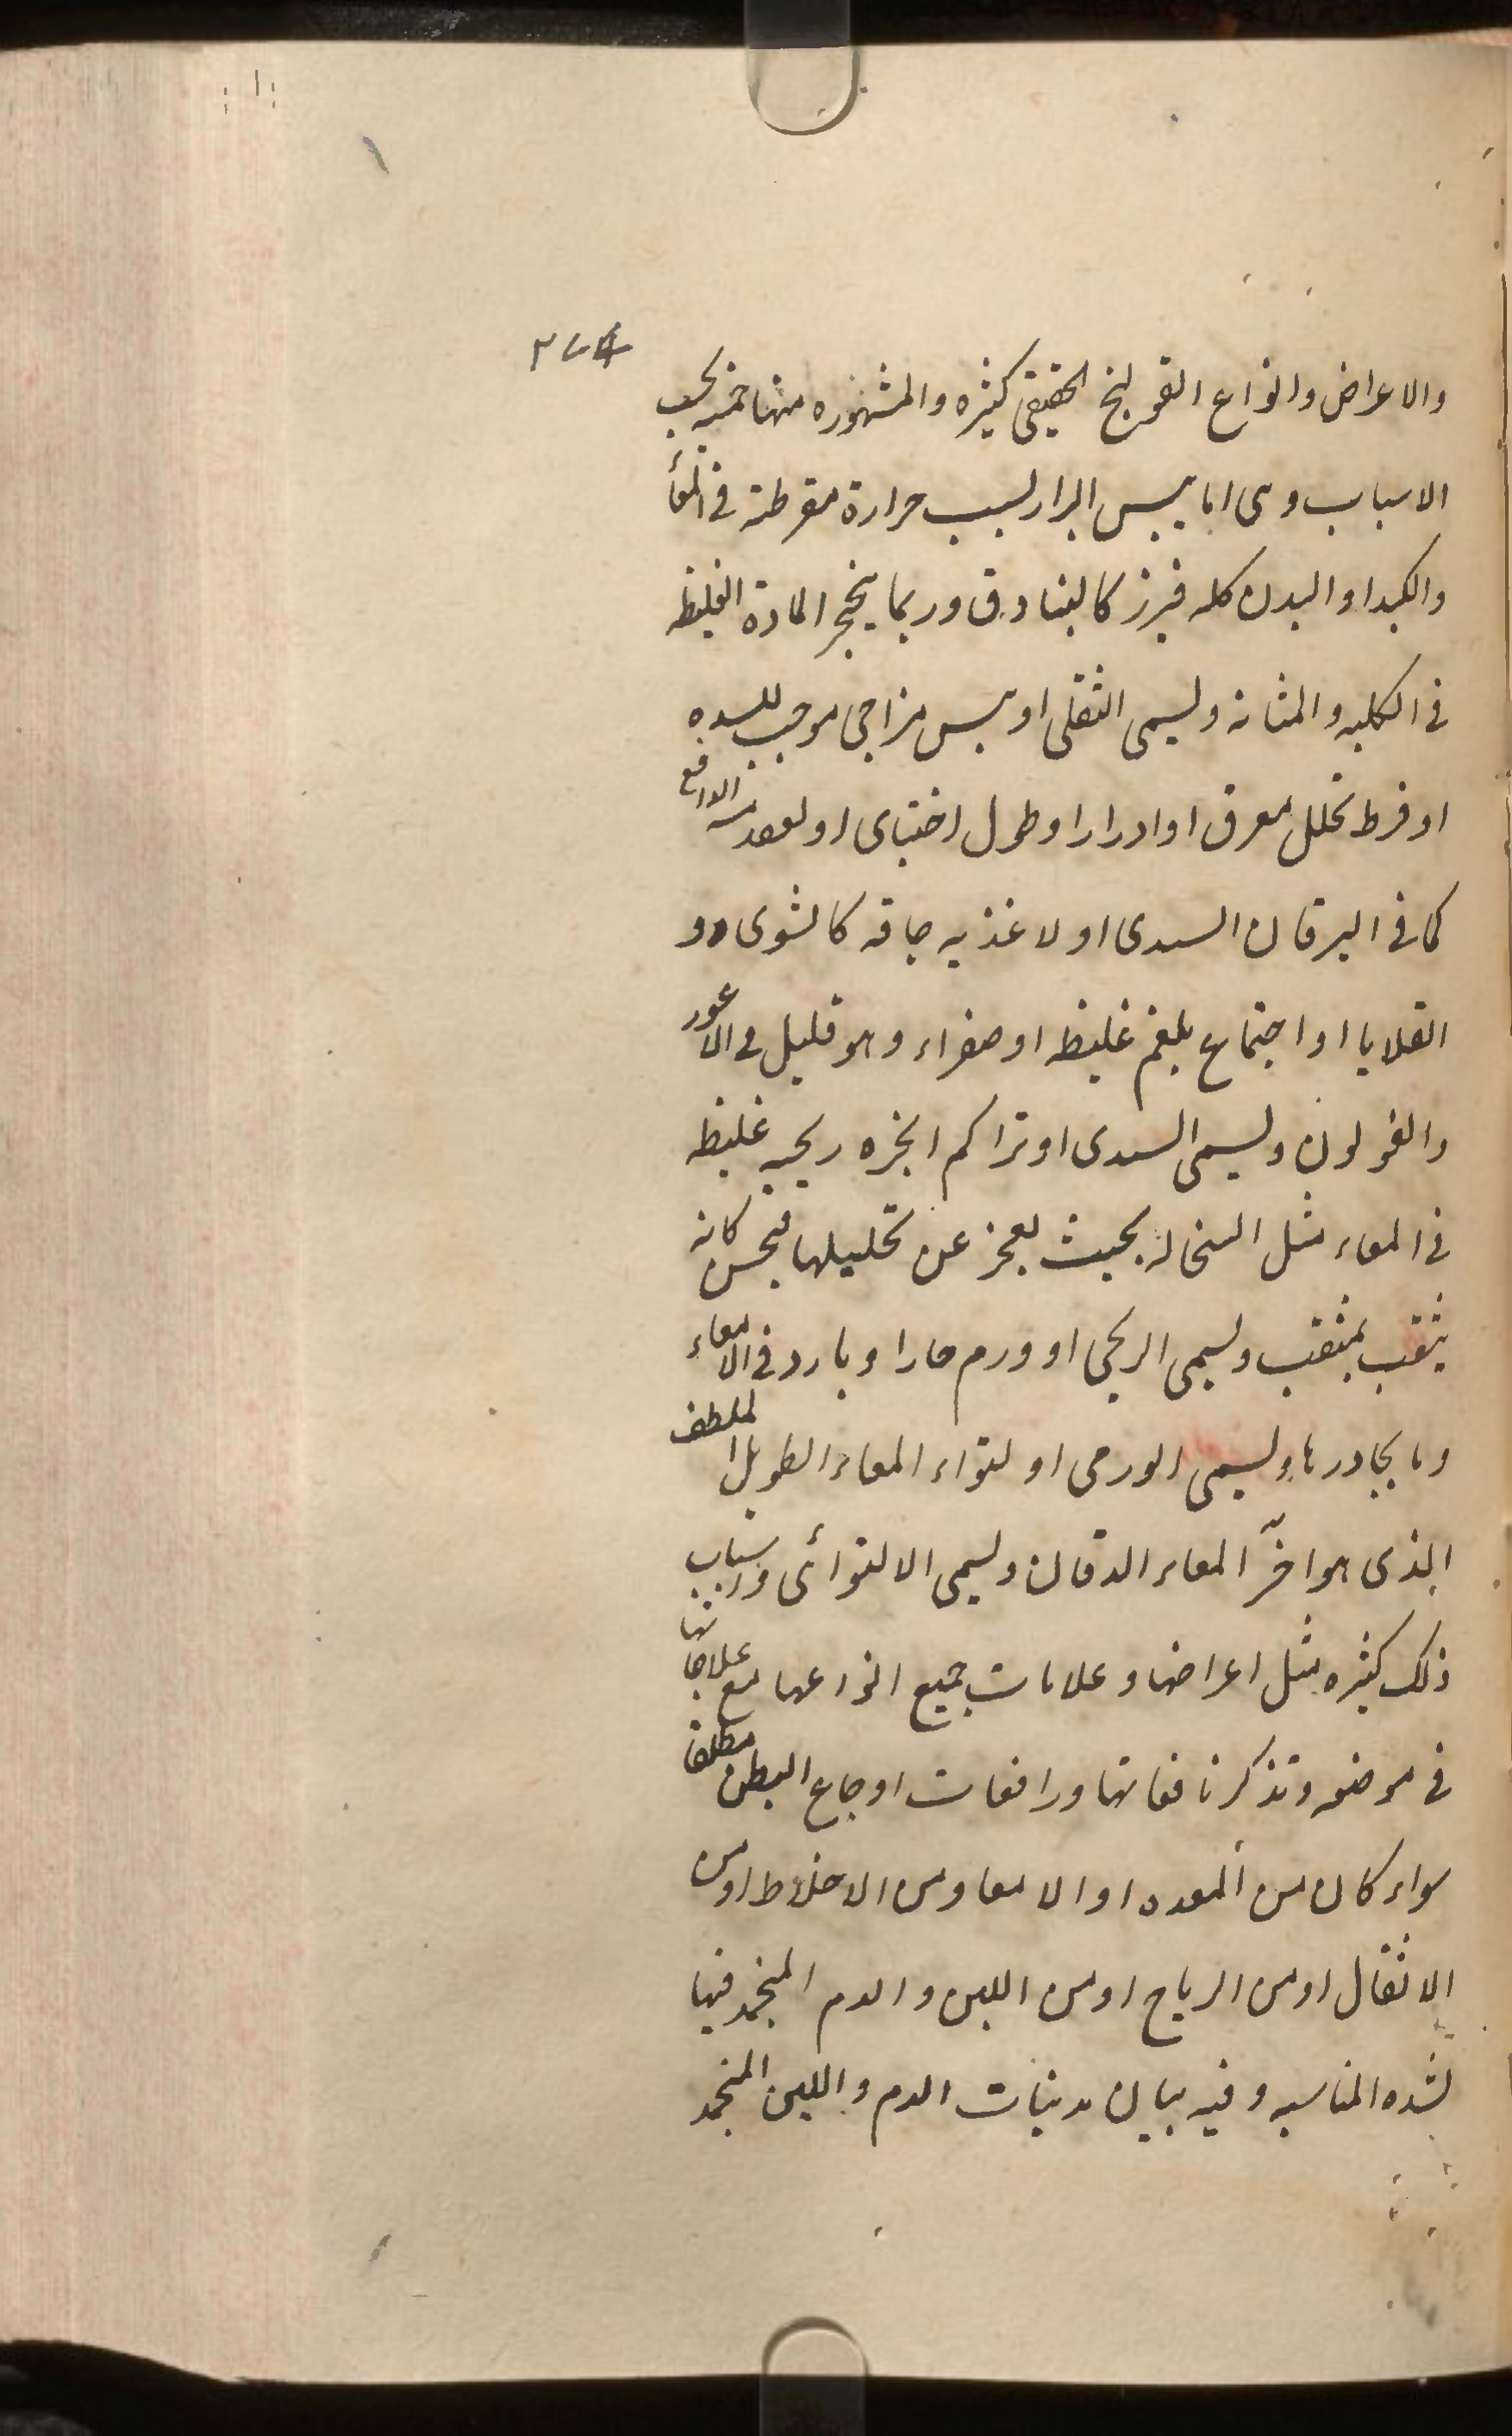 والاعراض وانواع القولنج الحقيقى كثيره والمشهوره منها خمسه بحسب
الاسباب وهى اما يبس البراز لسبب حرارة مفرطة فى المعأ
والكبد او البدن كله فيبرز كالبنادق وربما يتحجر المادة الغليظه
فى الكليه والمثانه وليسمى الثقلى او يبس مزاجى موجب للسده
او فرط تحلل بعرق او ادرار او طول احتباس او لفقد الدافع
كما فى اليرقان السدى او لاغذيه جافه كالشوى و
القلايا او اجتماع بلغم غليظ او صفراء وهو قليل فى الاعور
والقولون وليسمى السدى او تراكم ابخره ريحيه غليظه
فى المعاء مثل السخاله بحيث يعجز عن تحليلها فيحس كانه
يثقب بمثقب وليسمى الريحى او ورم حار او بارد فى الامعاء
وما يجاورها وليسمى الورمى او لتواء المعاء الطويل الملطف
الذى هو اخر المعاء الدقاق وليسمى الالتوائى واسباب
ذلك كثيره مثل اعراضها وعلامات جميع انواعها مع علاجاتها
فى موضعه وتذكر نافعاتها ورافعات اوجاع البطن مطلقا
سواء كان من المعده او الامعا ومن الاخلاط او من
الاثقال او من الرياح او من اللبن والدم المنجمد فيها
لشده المناسبه وفيه بيان مذيبات الدم واللبن المنجمد